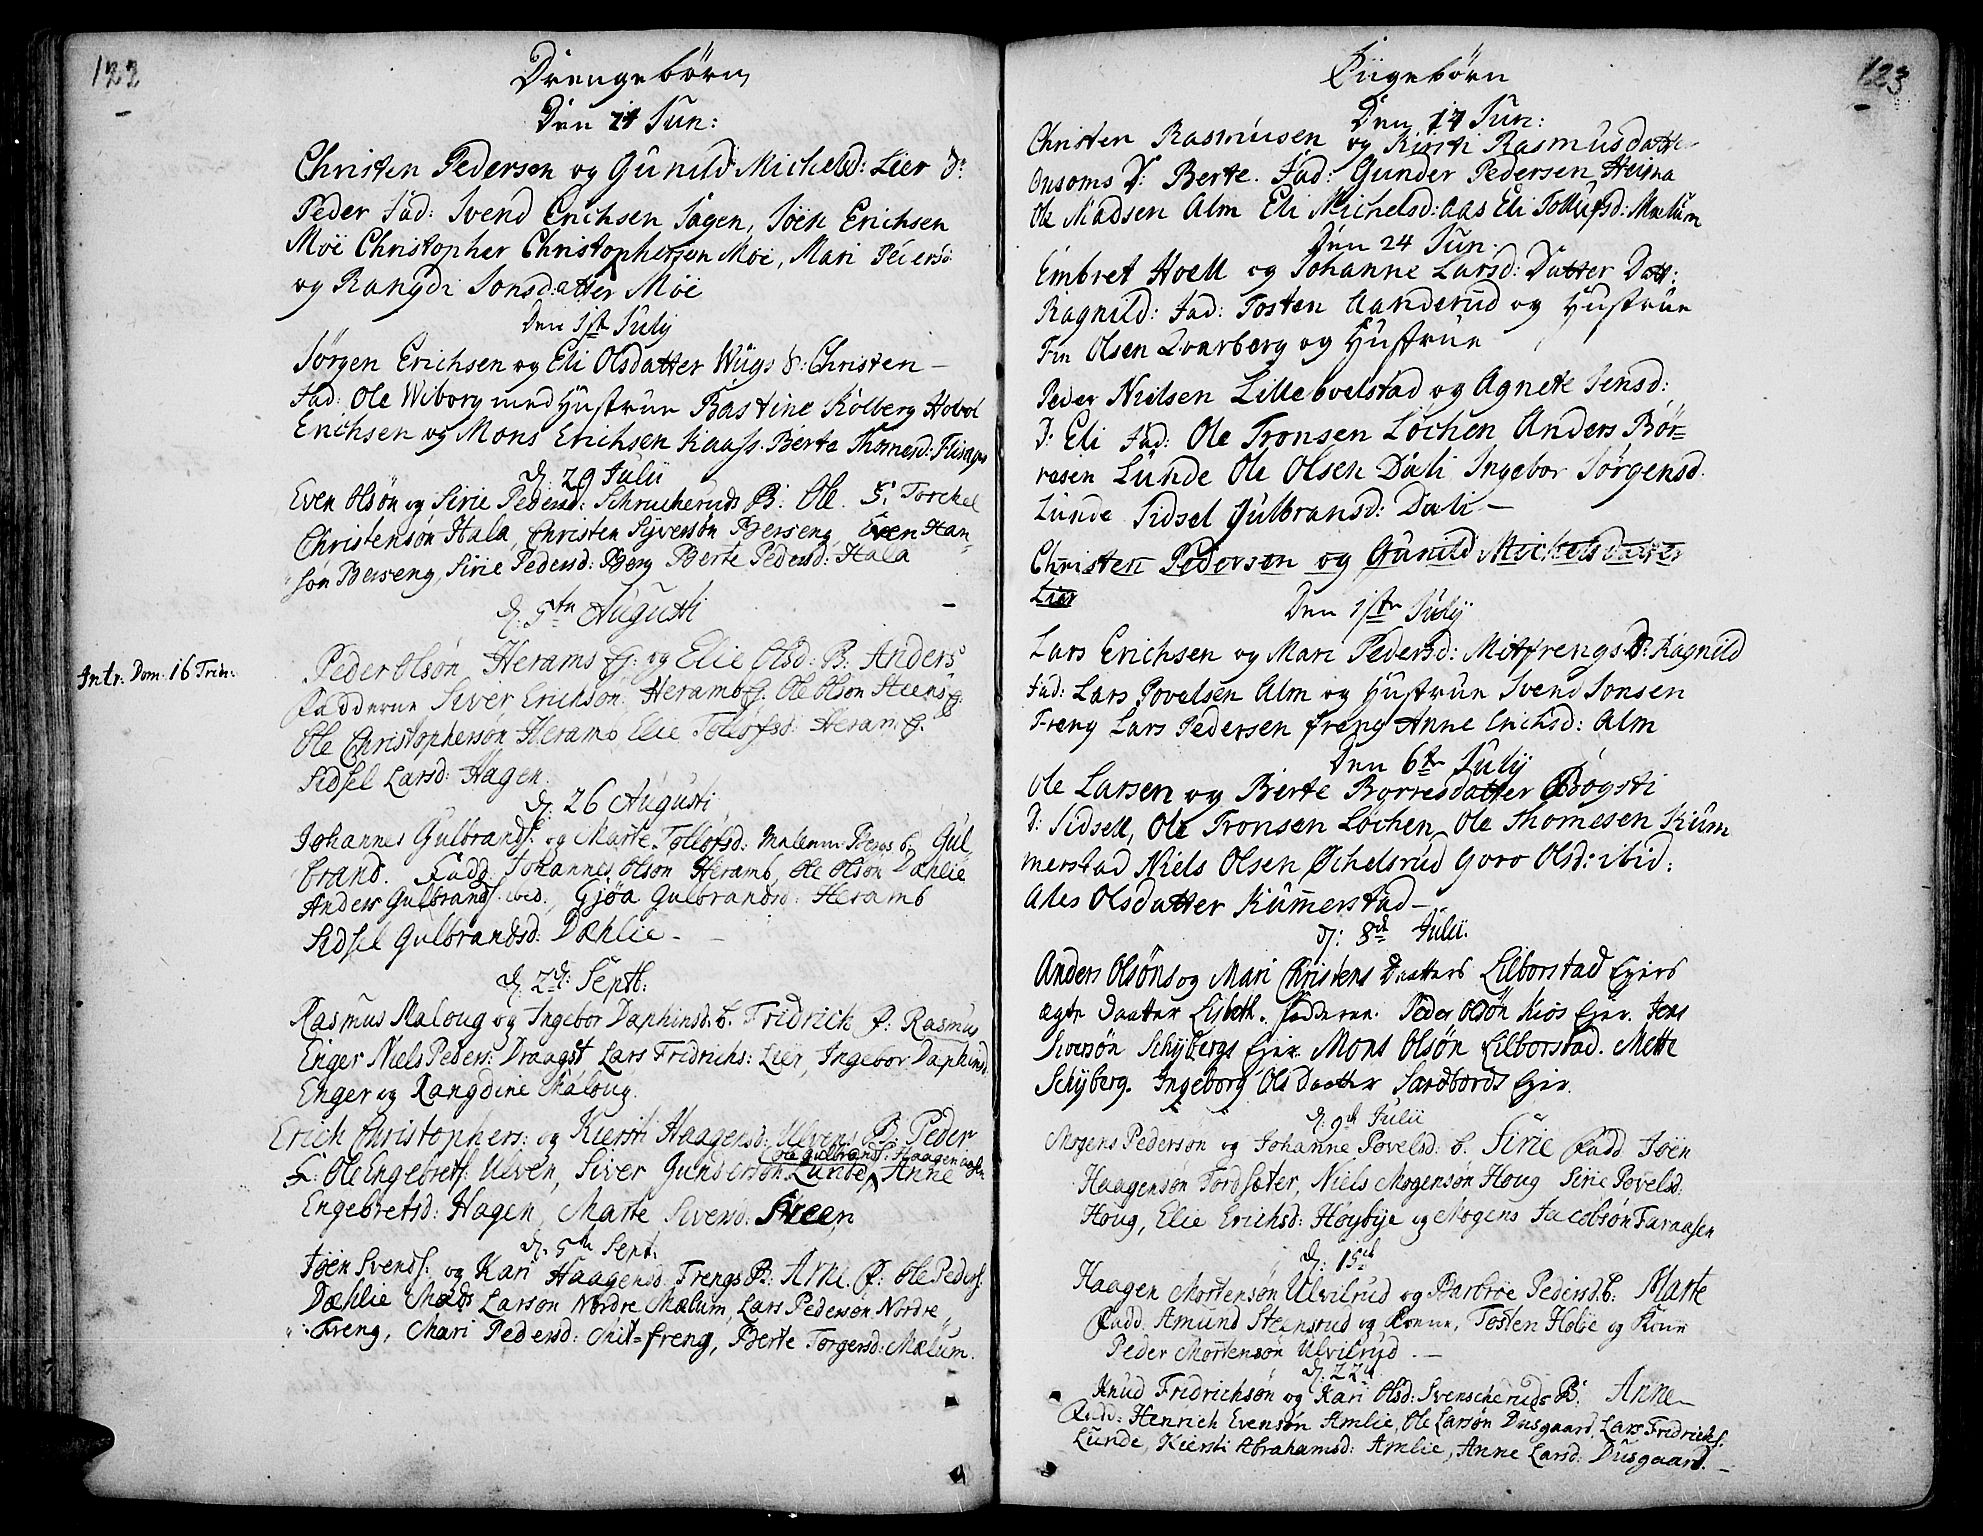 122
Drengebörn
Den 24 Jun:
Christen Pedersen og Gunild Michelsd: Lier D:
Peder Fad: Svend Erichsen Sagen, Jöen Erichsen
Moe Christopher Christophersen Moe, Mari Pedersd:
og Rangdi Jonsdatter Moe
Den 1ste July
Jörgen Erichsen og Eli Olsdatter Wügs S: Christen –
Fad: Ole Wiborg med Hustrue Bastine Kolberg
Erichsen og Mons Erichsen Kaass. Berte Thomesd:
d: 29 Julii
Even Olsön og Sirie Pedersd: B: Ole. F: Torchel
Christensön Hala, Christen Syversön Berseng Even Han-
sön Berseng, Sirie Pedersd: Berg Berte Pedersd: Hala
d: 5te Augusti
Intr: Dom. 16 Trin:
Peder Olsön Herams og Elie Olsd: B: Anders
Fadderne Siver Erichson Heramb Ole Olson Steens
Ole Christophersön Heramb Elie Tollofsd: Heram
Sidsel Larsd: Hagen.
d: 26 Augusti
Johannes Gulbrands: og Marte Tollofsd: Malerum b: Gul
brand. Fadd. Johannes Olson Heramb, Ole Olson Dæhlie
Anders Gulbrands: ibid, Gjöa Gulbrandsd: Heramb
Sidsel Gulbrandsd: Dæhlie –
d: 2d: Septb:
Rasmus Maloug og Ingebor Daphinsd: b. Fridrich f: Rasmus
Enger Niels Peders: Draagst Lars Fridrichs: Lier, Ingebor Daphinsd
Enger og Rangdine Maloug.
Erich Christophers: og Kiersti Haagensd: Ulvens B: Peder
F: Ole Engebrets: Ulven, Siver Gunderson Lunde, Anne
Ole Gulbrands: Haagenaasen
Engebretsd: Hagen, Marte Siversd: Steen
d: 5te Sept.
Jöen Svends: og Kari Haagensd: Frengs B: Arne. F: Ole Peders:
Dæhlie Mads Larson Nordre Mælum, Lars Pedersen Nordre
Freng, Mari Pedersd: Mit-freng, Berte Torgersd: Mælum.
123
Piigebörn
Den 17 Jun:
Christen Rasmusen og Kirsti Rasmusdatter
Onsoms D: Berte. Fad: Gunder Pedersen Heisna
Ole Madsen Alm Eli Michelsd: Aas Eli Tollufsd: Mælum
Den 24 Jun.
Embret Hoell og Johanne Larsd: Datter Datt:
Ragnild: Fad: Tosten Aanderud og Hustrue
Fin Olsen Qvarberg og Hustrue
Peder Nielsen Lilleboelstad og Agnete Jensd:
D: Eli Fad: Ole Tronsen Lochen Anders Bör-
resen Lünde Ole Olsen Dæli Ingebor Jörgensd.
Lunde Sidsel Gulbransd: Dæli –
Christen Pedersen og Gunild Michelsdatter
Lier
Den 1ste July
Lars Erichsen og Mari Pedersd: Mitfrengs D: Ragnild
Fad: Lars Povelsen Alm og Hustrue Svend Jonsen
Freng Lars Pedersen freng Anne Erichsd: Alm
Den 6te July
Ole Larsen og Berte Borresdatter Bögsti
D: Sidsell, Ole Tronsen Lochen Ole Thomesen Küm
merstad Niels Olsen Öchelsrud Goro Olsd: ibid:
Ales Olsdatter Kümerstad –
d: 8de Julii.
Anders Olsöns og Mari Christens Daatters Lilborstad Eyers
ægte Daatter Lisbeth. Fadderne. Peder Olsön Kios Eyer. Jens
Siversön Schybergs Eyer. Mons Olsön Lilborstad. Mette
Schyberg. Ingeborg Ols Daatter Sandbords Eyer.
d: 9de Julii
Mogens Pederson og Johanne Povelsd: b. Sirie Fadd Jöen
Haagensön Tordsæter, Niels Mogensön Houg Sirie Povelsd:
Houg, Elie Erichsd: Höybye og Mogens Jacobson Faraasen
d: 15de
Haagen Mortensön Ulvilrud og Barbroe Pedersd: b: Marte
Fadd. Amund Steinsrud og Kone, Tosten Holie og Kone
Peder Mortensön Ulvilrud. –
d: 22d
Knud Fridrichsön og Kari Olsd: Svenscheruds B: Anne –
Fadd: Henrich Evensön Amlie, Ole Larsön Dusgaard, Lars Fridrichs:
Lunde, Kiersti Abrahamsd: Amlie, Anne Larsd: Dusgaard. –